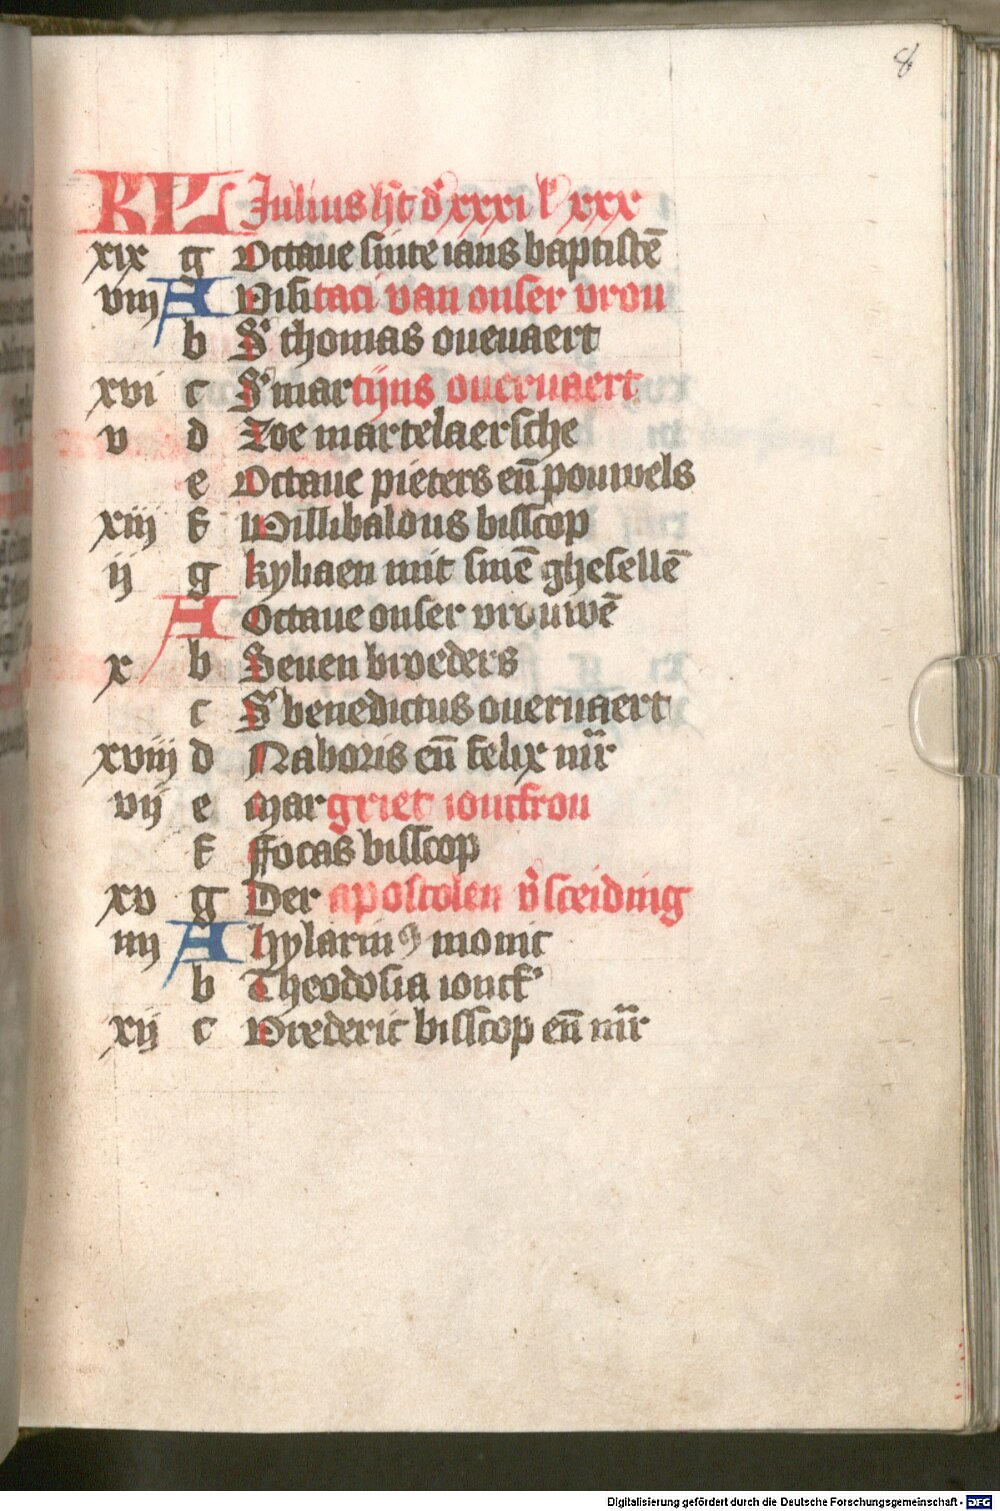 8
KL Julius h̄t d̕ xxxi l̕ xxx
xix g Octaue sinte ians baptistē
viij A Visitaci van onser vrou
b S̕ thomas oueuaert
xvi c S̕ martijns oueruaert
v d Zoe martelaersche
e Octaue pieters en̄ pouwels
xiij f Willibaldus bisscop
ij g kyliaen mit sinē ghesellē
A Octaue onser vrouwē
x b Seuen broeders
c S̕ benedictus oueruaert
xviij d Naboris en̄ felix mr̄
vij e Margriet ioncfrou
f ffocas bisscop
xv g Der apostolen v̕sceiding
iiij A hylarinꝰ monic
b Theodosia ioncf̕
xij c Vrederic bisscop en̄ mr̄
Digitalisierung gefördert durch die Deutsche Forschungsgemeinschaft - DFG